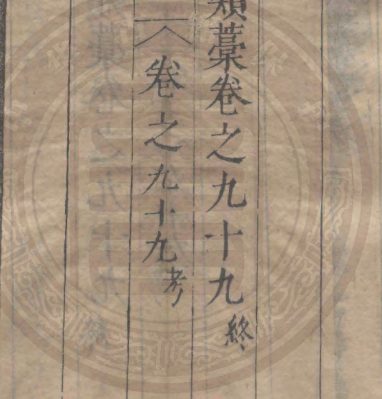 類藁卷之九十九終
卷之九十九考